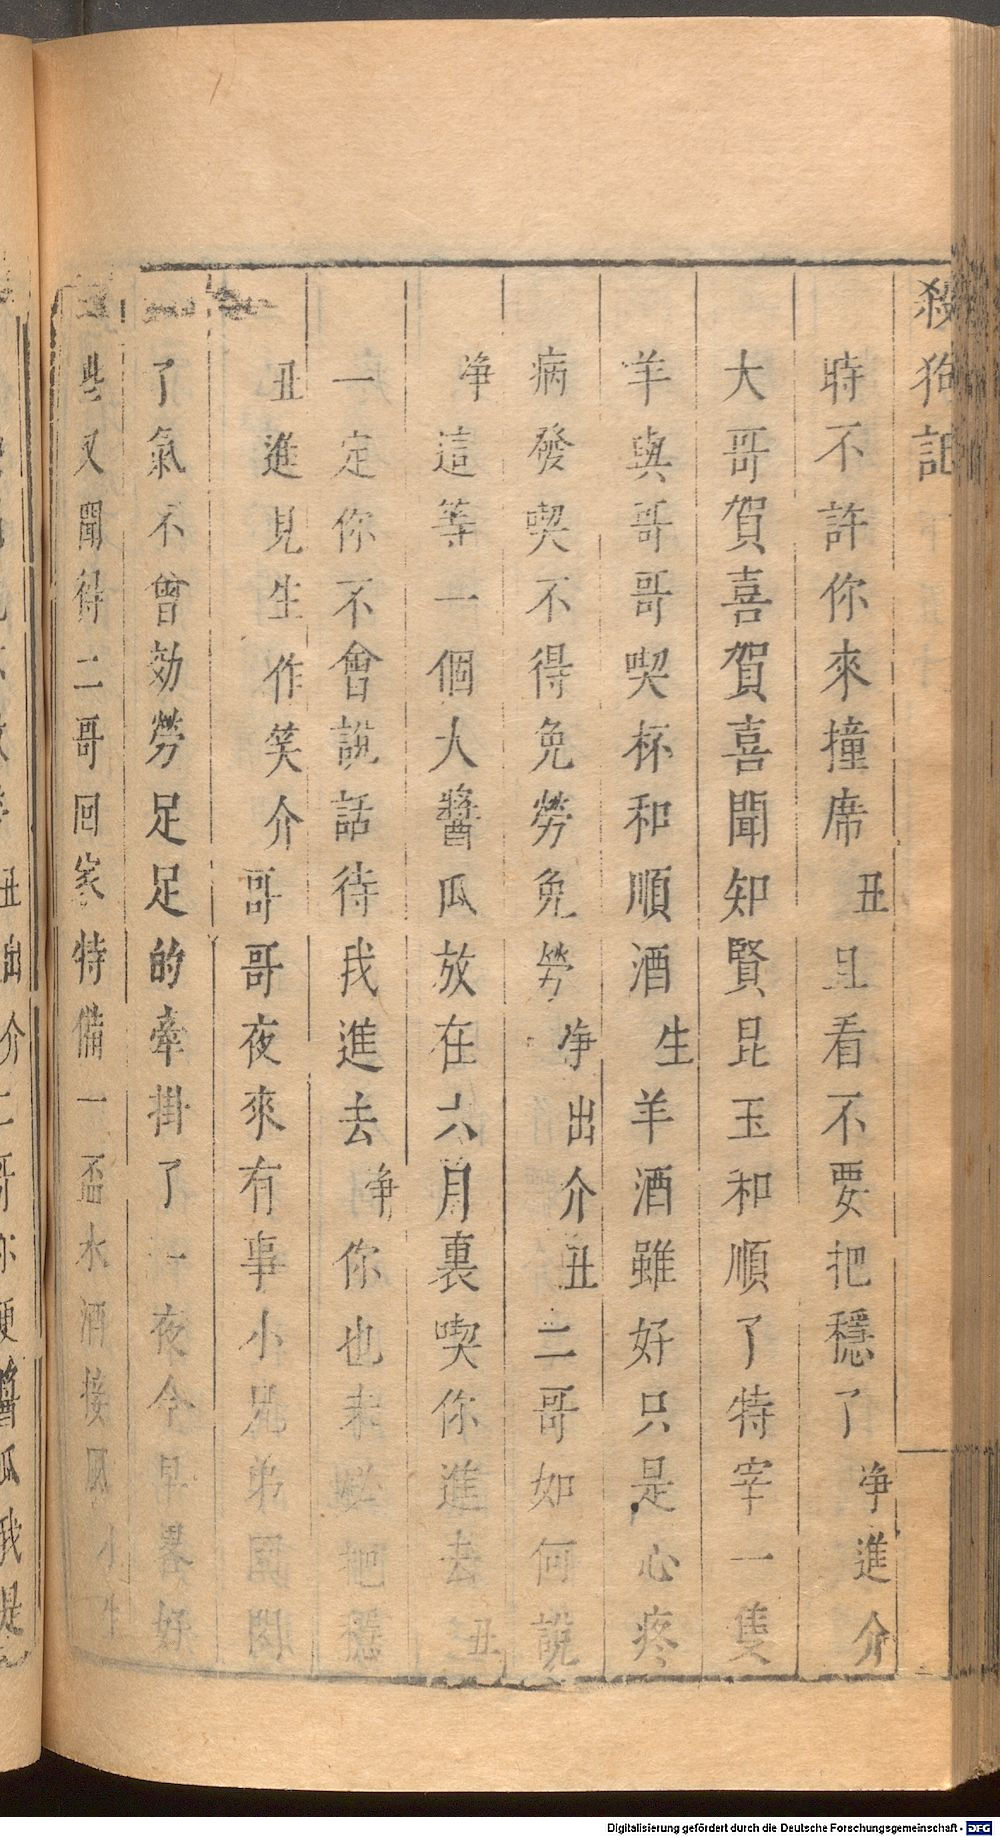 殺狗記
時不許你來撞席丑且看不要把穩了净進介
大哥賀喜賀喜聞知賢昆玉和順了特宰一隻
羊與哥哥喫杯和順酒生羊酒雖好只是心疼
病發喫不得免勞免勞净出介丑二哥如何說
净這等一個人醬瓜放在六月裏喫你進去丑
一定你不會說話待我進去净你也未必把穩
丑進見生作笑介哥哥夜來有事小兄弟
了氣不曾効勞足足的牽掛了一夜今早畧好
些又聞得二哥回家特備一盃水酒接風小生
丑出介二哥你便醬瓜我是
Digitalisierung gefördert durch die Deutsche Forschungsgemeinschaft - DFG